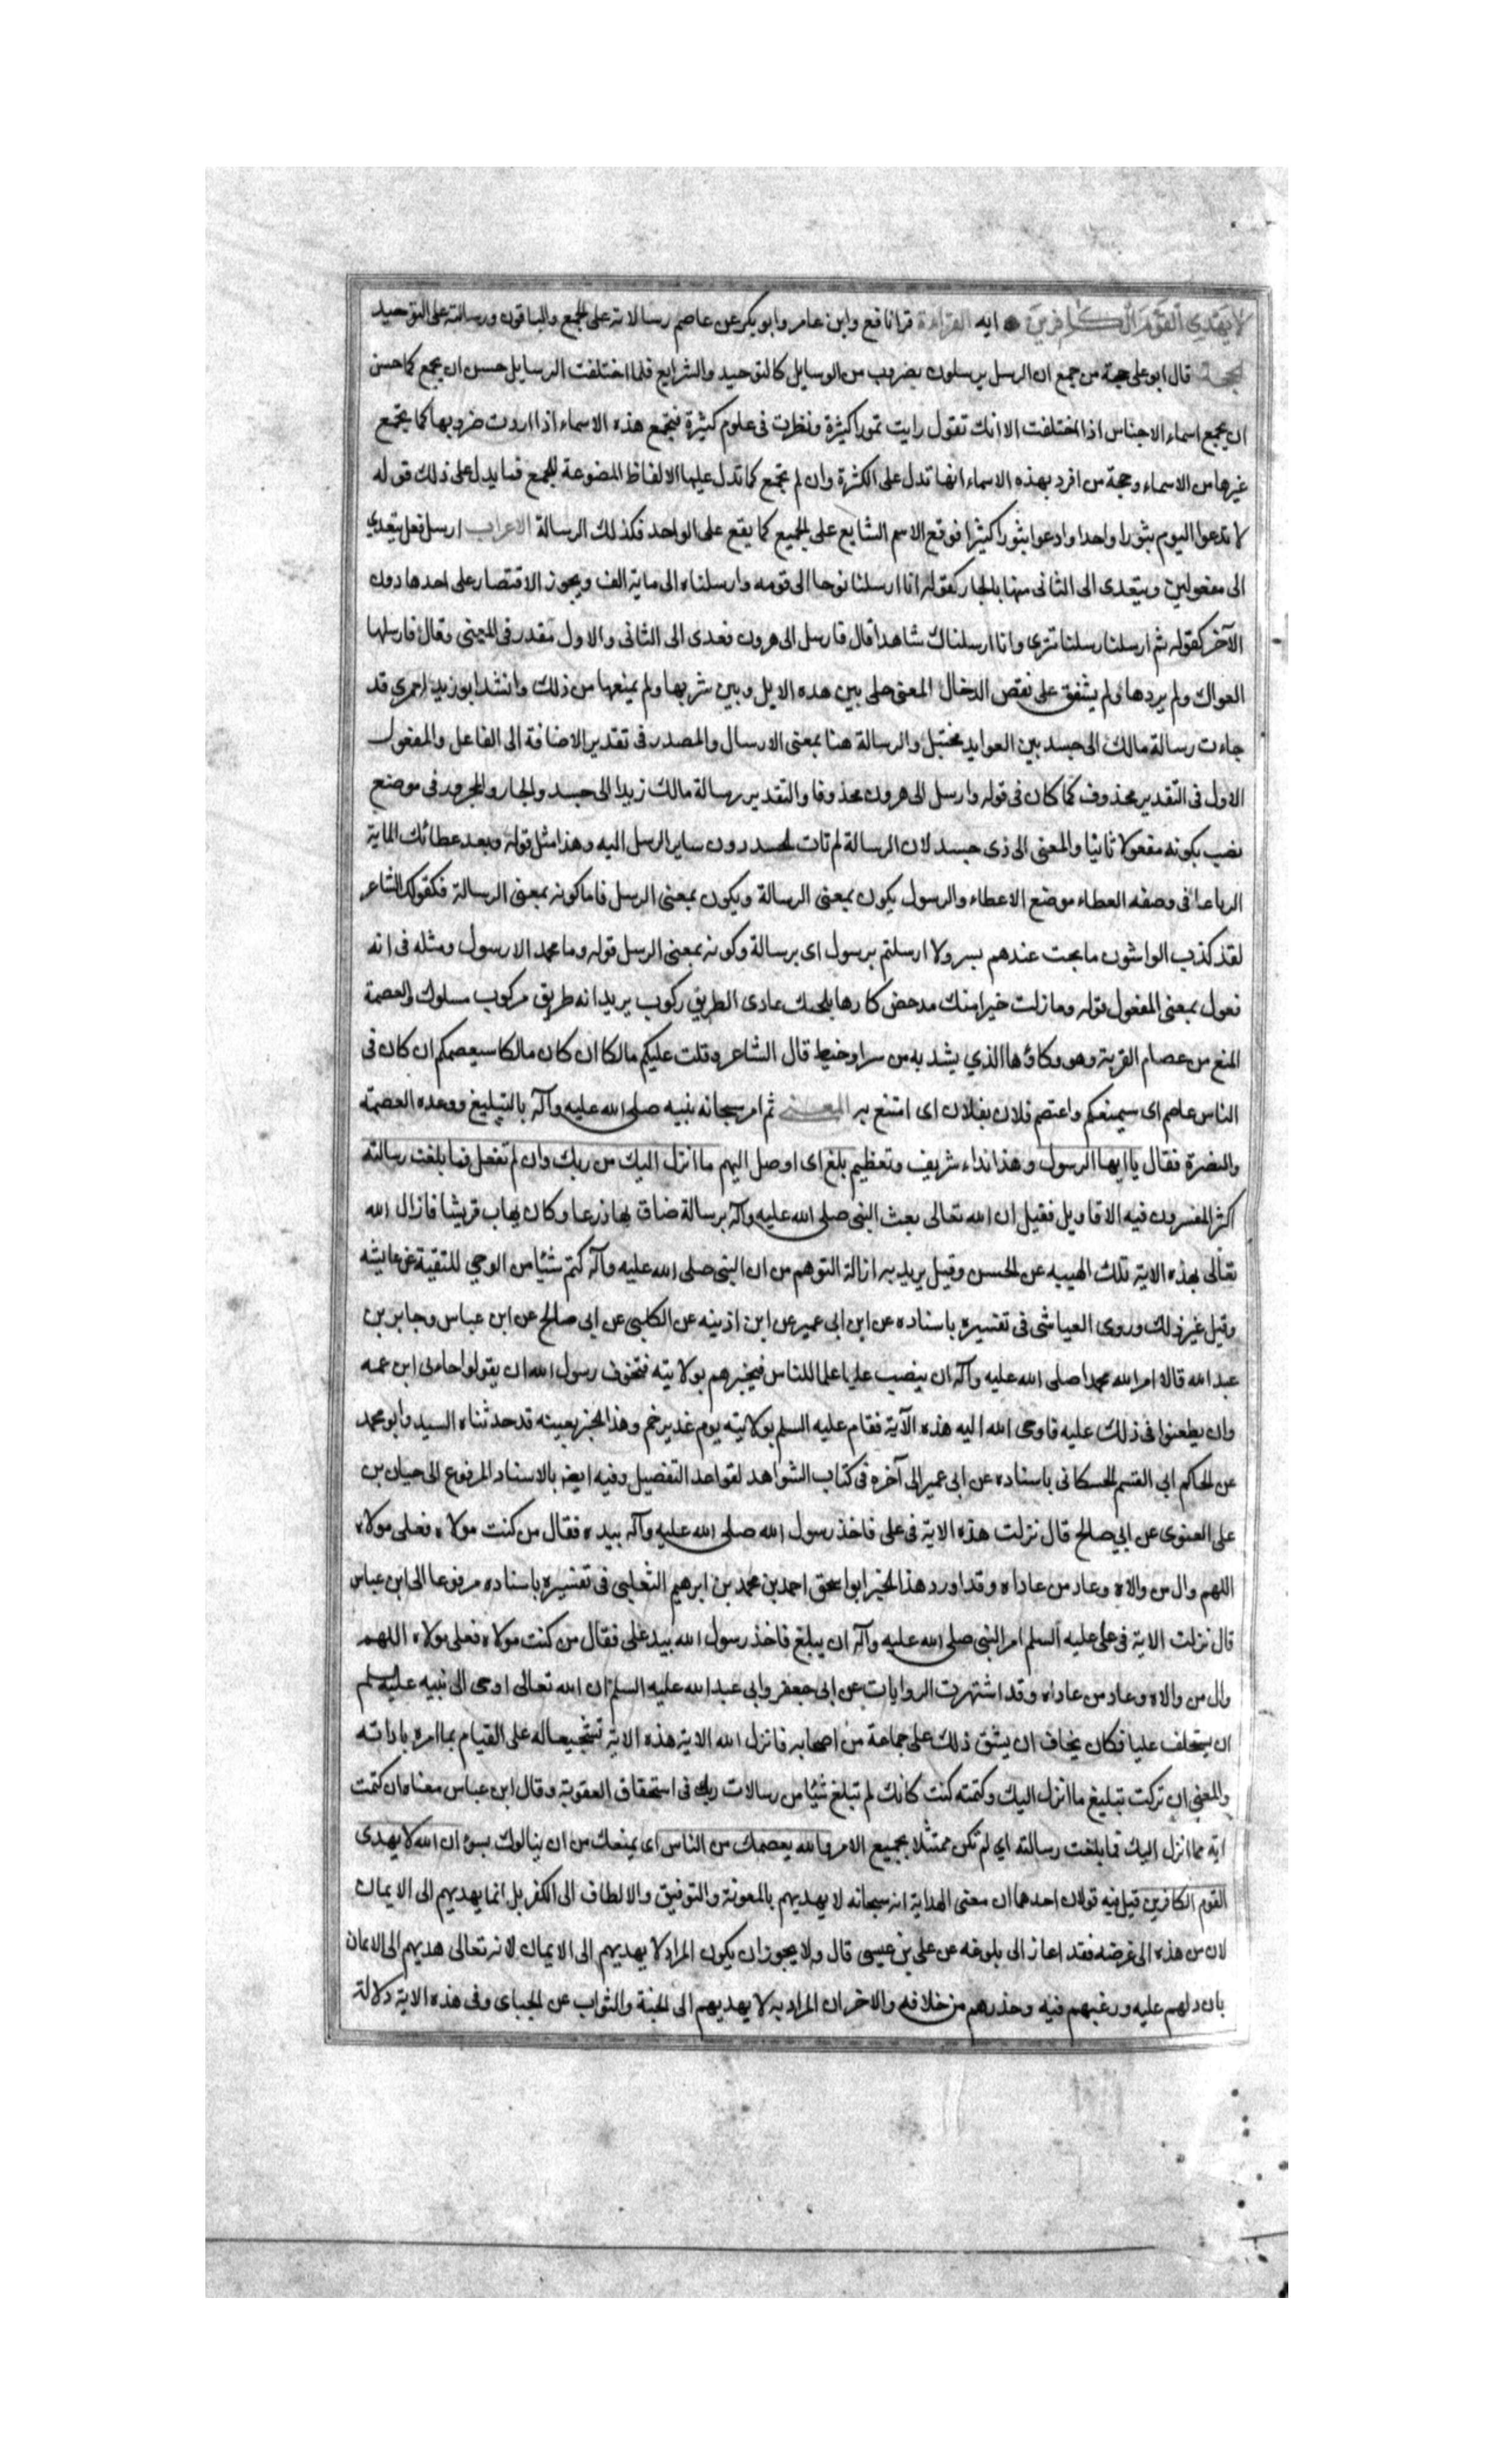 لا يَهْدِي القَوْمَ الْكَافِرِينَ ايه القراءة قرا نافع وابن عامر وابو بكر عن عاصم رسالاته على الجمع والباقون ورسالته على التوحيد
الحجة قال ابو علي حجة من جمع ان الرسل يرسلون بضروب من الوسايل كالتوحيد والشرايع فلما اختلفت الرسايل حسن ان يجمع كما حسن
ان يجمع اسماء الاجناس اذا اختلفت الا انك تقول رايت تمورا كثيرة ونظرت في علوم كثيرة فتجمع هذه الاسماء اذا اردت ضروبها كما يجمع
غيرها من الاسماء وحجة من افرد بهذه الاسماء انها تدل على الكثرة وان لم تجمع كما تدل عليها الالفاظ المضوعة للجمع فما يدل على ذلك قوله
لا تدعوا اليوم ثبورا واحدا وادعوا ثبورا كثيرا فوقع الاسم الشايع على الجميع كما يقع على الواحد فكذلك الرسالة الاعراب ارسل فعل يتعدي
الى مفعولين ويتعدى الى الثاني منها بالجار كقوله انا ارسلنا نوحا الى قومه وارسلناه الى ماية الف ويجوز الاقتصار على احدها دون
الآخر كقوله ثم ارسلنا رسلنا تترى وانا ارسلناك شاهدا قال فارسل الى هرون فعدى الى الثاني والاول مقدر في المعنى وقال فارسلها
العراك ولم يردها ولم يشفق على نغص الدخال المعنى خلى بين هده الابل وبين شربها ولم يمنعها من ذلك وانشد ابو زيد لعمري قد
جاءت رسالة مالك الى جسد بين العوايد مختبل والرسالة هنا بمعنى الارسال والمصدر في تقدير الاضافة الى الفاعل والمفعول
الاول في التقدير محذوف كما كان في قوله وارسل الى هرون محذوفا والتقدير رسالة مالك زيدا الى جسد والجار والمجرور في موضع
نصب بكونه مفعولا ثانيا والمعنى الى ذى جسد لان الرسالة لم تات لجسد دون ساير الرسل اليه وهذا مثل قوله وبعد عطائك الماية
الرتاعا في وضعه العطاء موضع الاعطاء والرسول يكون بمعنى الرسالة ويكون بمعنى الرسل فاما كونه بمعنى الرسالة فكقول الشاعر
لقد كذب الواشون ما بحت عندهم بسر ولا ارسلتم برسول اى برسالة وكونه بمعنى الرسل قوله وما محمد الا رسول ومثله في انه
فعول بمعنى المفعول قوله وما زلت خيرا منك مدعض كارها بلحيك عادى الطريق ركوب يريد انه طريق مركوب مسلوك والعصمة
المنع من عصام القربة وهو وكاؤها الذي يشد به من سير او خيط قال الشاعر وقلت عليكم مالكا ان كان مالكا سيعصمكم ان كان في
الناس عاصم اى سيمنعكم واعتصم فلان بفلان اى امتنع به المعنى ثم امر سبحانه نبيه صلى الله عليه وآله بالتبليغ ووعده العصمة
والنصرة فقال يا ايها الرسول وهذا نداء شريف وتعظيم بلغ اى اوصل اليهم ما انزل اليك من ربك وان لم تفعل فما بلغت رسالته
اكثر المفسرون فيه الاقاويل فقيل ان الله تعالى بعث النبى صلى الله عليه وآله برسالة ضاق بها ذرعا وكان يهاب قريشا فازال الله
تعالى بهذه الاية تلك الهيبه عن الحسن وقيل يريد به ازالة التوهم من ان النبى صلى الله عليه وآله كتم شيئا من الوحي للتقية عن عايشه
وقيل غير ذلك وروى العياشى في تفسيره باسناده عن ابن ابى عمير عن ابن اذينه عن الكلبى عن ابى صالح عن ابن عباس وجابر بن
عبد الله قالا امر الله محمدا صلى الله عليه وآله ان ينصب عليا علما للناس فيخبرهم بولايته فتخوف رسول الله ان يقولوا حامى ابن عمه
وان يطعنوا في ذلك عليه فاوحى الله اليه هذه الآية فقام عليه السلم بولايته يوم غدير خم وهذا الخبر بعينه قد حدثناه السيد وابو محمد
عن الحاكم ابي القسم الحسكاني باسناده عن ابى عمير الى آخره في كتاب الشواهد لقواعد التفضيل وفيه ايضا بالاسناد المرفوع الى حيان بن
على العنوى عن ابي صالح قال نزلت هذه الاية في على فاخذ رسول الله صلى الله عليه وآله بيده فقال من كنت مولاه فعلى مولاه
اللهم وال من والاه وعاد من عاداه وقد اورد هذا الخبر ابو اسحق احمد بن محمد بن ابرهيم الثعلبى في تفسيره باسناده مرفوعا الى ابن عباس
قال نزلت الاية في على عليه السلم امر النبى صلى الله عليه وآله ان يبلغ فاخذ رسول الله بيد على فقال من كنت مولاه فعلى مولاه اللهم
وال من والاه وعاد من عاداه وقد اشتهرت الروايات عن ابى جعفر وابى عبد الله عليه السلم ان الله تعالى اوحى الى نبيه عليه السلم
ان يستخلف عليا فكان يخاف ان يشق ذلك على جماعة من اصحابه فانزل الله الاية هذه الاية تشجيعا له على القيام بما امره باداته
والمعنى ان تركت تبليغ ما انزل اليك وكتمته كنت كانك لم تبلغ شيئا من رسالات ربك في استحقاق العقوبة وقال ابن عباس معناه ان كتمت
اية مما انزل اليك فما بلغت رسالته اي لم تكن ممتثلا بجميع الامر والله يعصمك من الناس اى يمنعك من ان ينالوك بسوء ان الله لا يهدى
القوم الكافرين قيل فيه قولان احدهما ان معنى الهداية انه سبحانه لا يهديهم بالمعونة والتوفيق والالطاف الى الكفر بل انما يهديهم الى الايمان
لان من هذه الى غرضه فقد اعاز الى بلوغه عن على بن عيسى قال ولا يجوز ان يكون المراد لا يهديهم الى الايمان لانه تعالى هديهم الى الايمان
بان دلهم عليه ورغبهم فيه وحذرهم من خلافه والاخر ان المراد به لا يهديهم الى الجنة والثواب عن الجباى وفى هذه الاية دلالة